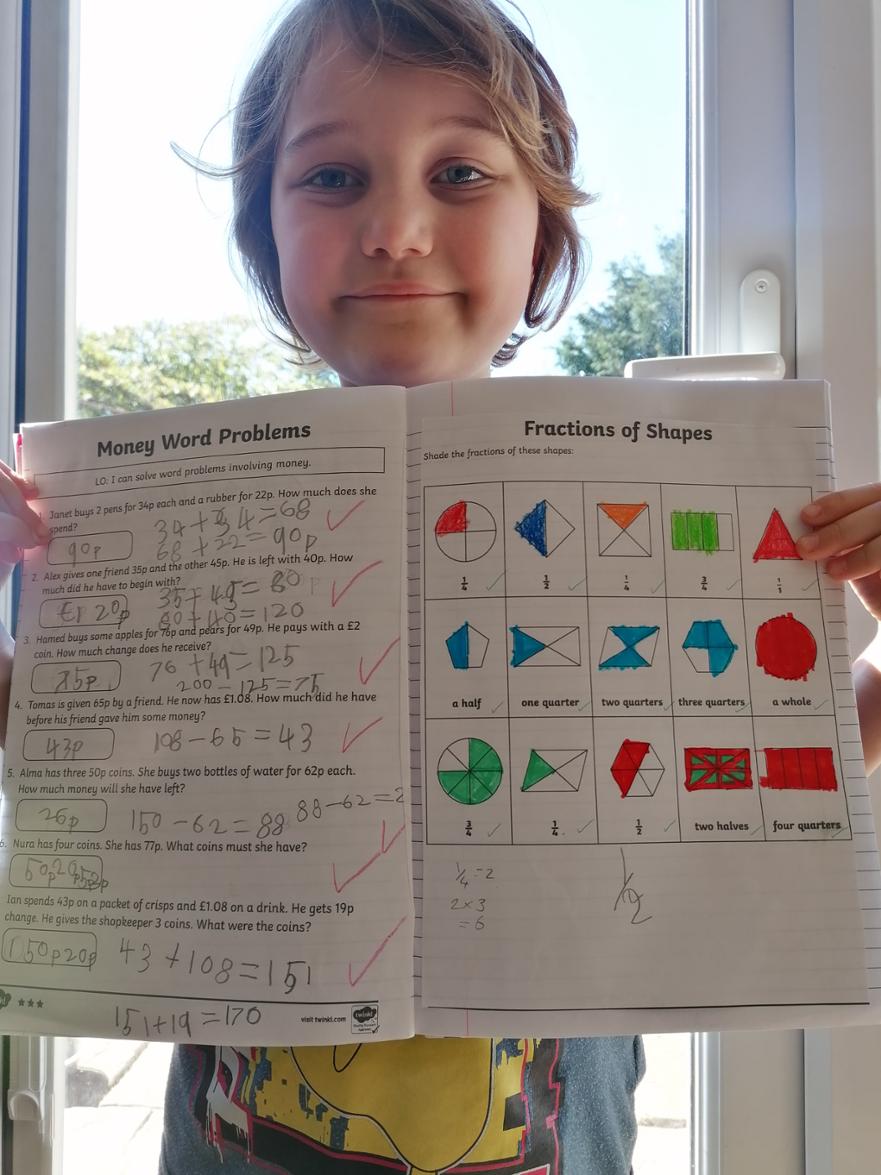 Money Word Problems
LO: I can solve word problems involving money.
1. Janet buys 2 pens for 34p each and a rubber for 22p. How much does she
spend?
34+34=68
68+22=90p
90p
2. Alex gives one friend 35p and the other 45p. He is left with 40p. How
much did he have to begin with?
35+45=80
80+40=120
£1 20p
3. Hamed buys some apples for 76p and pears for 49p. He pays with a £2
coin. How much change does he receive?
76+49=125
200-125=75
75p
4. Tomas is given 65p by a friend. He now has £1.08. How much did he have
before his friend gave him some money?
43p
108-65=43
5. Alma has three 50p coins. She buys two bottles of water for 62p each.
How much money will she have left?
26p
150-62=88
88-62=2
6. Nura has four coins. She has 77p. What coins must she have?
50p 20p 5p 2p
Ian spends 43p on a packet of crisps and £1.08 on a drink. He gets 19p
change. He gives the shopkeeper 3 coins. What were the coins?
50p 20p
43+108=151
151+19=170
visit twinkl.com
twinkl
Fractions of Shapes
Shade the fractions of these shapes:
1/4 1/2 1/4 3/4 1/1
a half one quarter two quarters three quarters a whole
3/4 1/4 1/2 two halves four quarters
1/4=2
2x3
=6
1/2